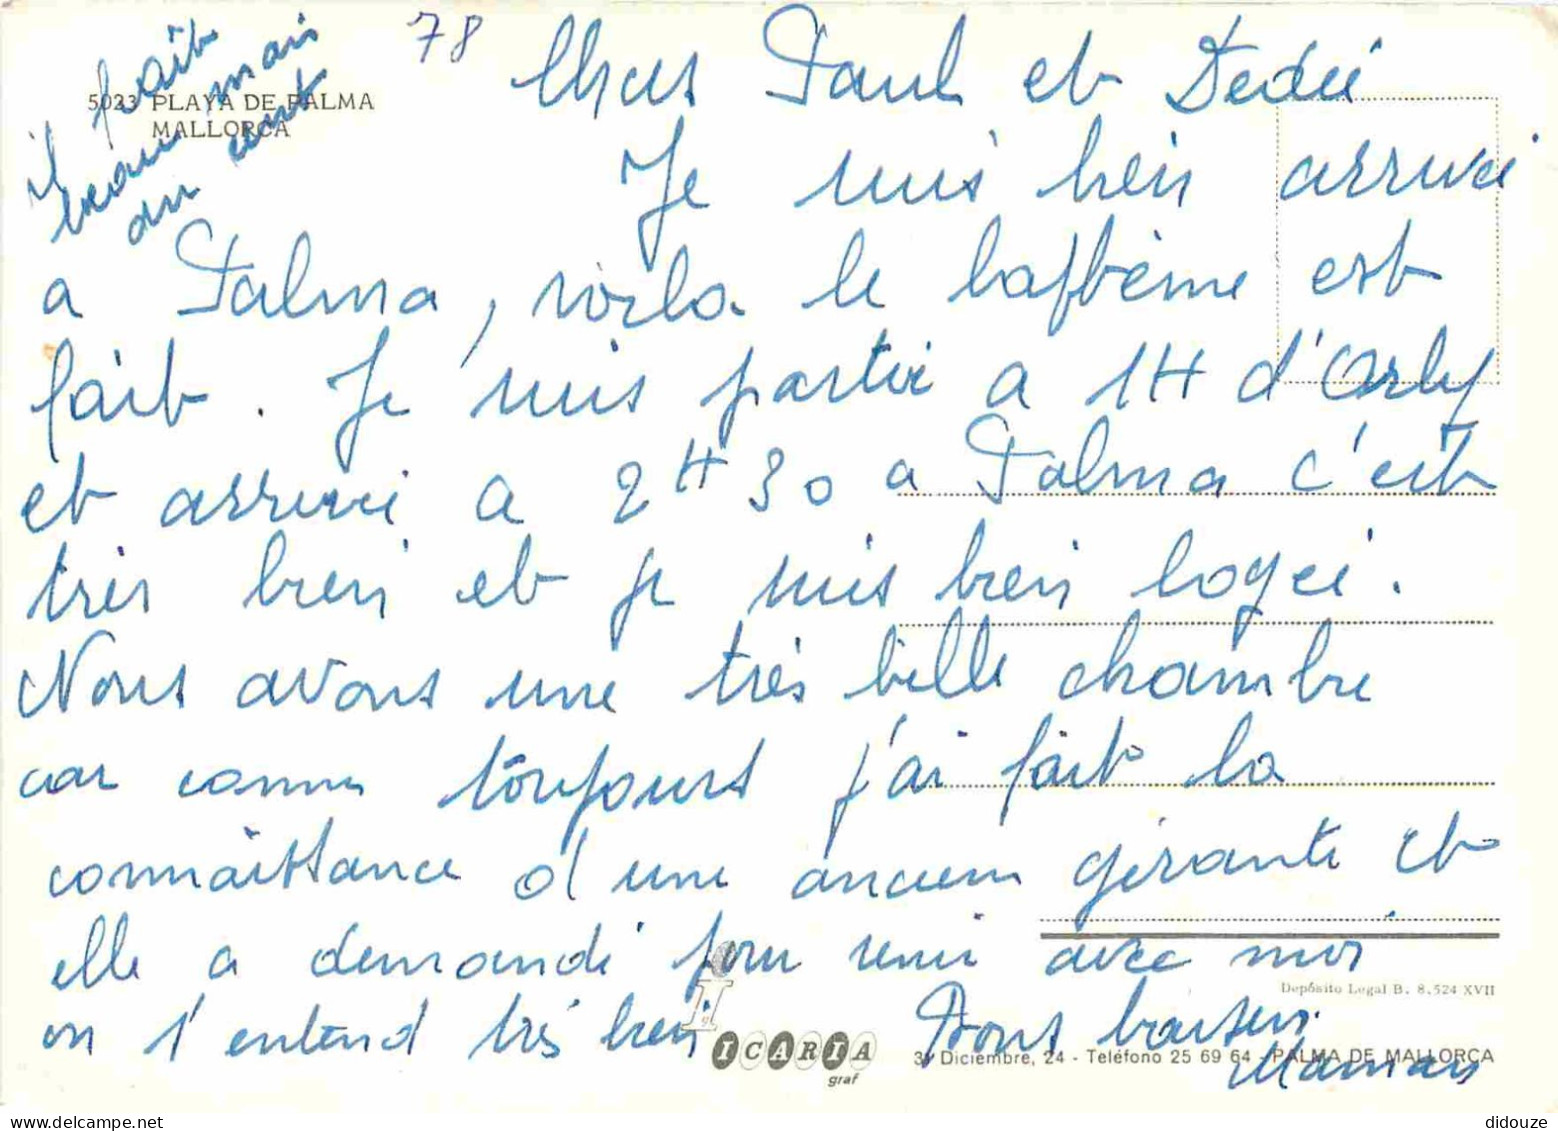 78
il fait
beau mais
du vent
5023 PLAYA DE PALMA
MALLORCA
Chers Paul et Dédée
Je suis bien arrivée
a Palma, voila le baptème est
fait. Je suis partie a 1H d'Orly
et arrivée a 2H30 a Palma c'est
très bien et je suis bien logée.
Nous avons une très belle chambre
car comme toujours j'ai fait la
connaissance d'une ancienne gérante et
elle a demandé pour venir avec moi
on s'entend très bien
Bons baisers.
Maman
Depósito Legal B. 8.524 XVII
ICARIA
graf
31 Diciembre, 24 - Teléfono 25 69 64 - PALMA DE MALLORCA
didouze
www.delcampe.net